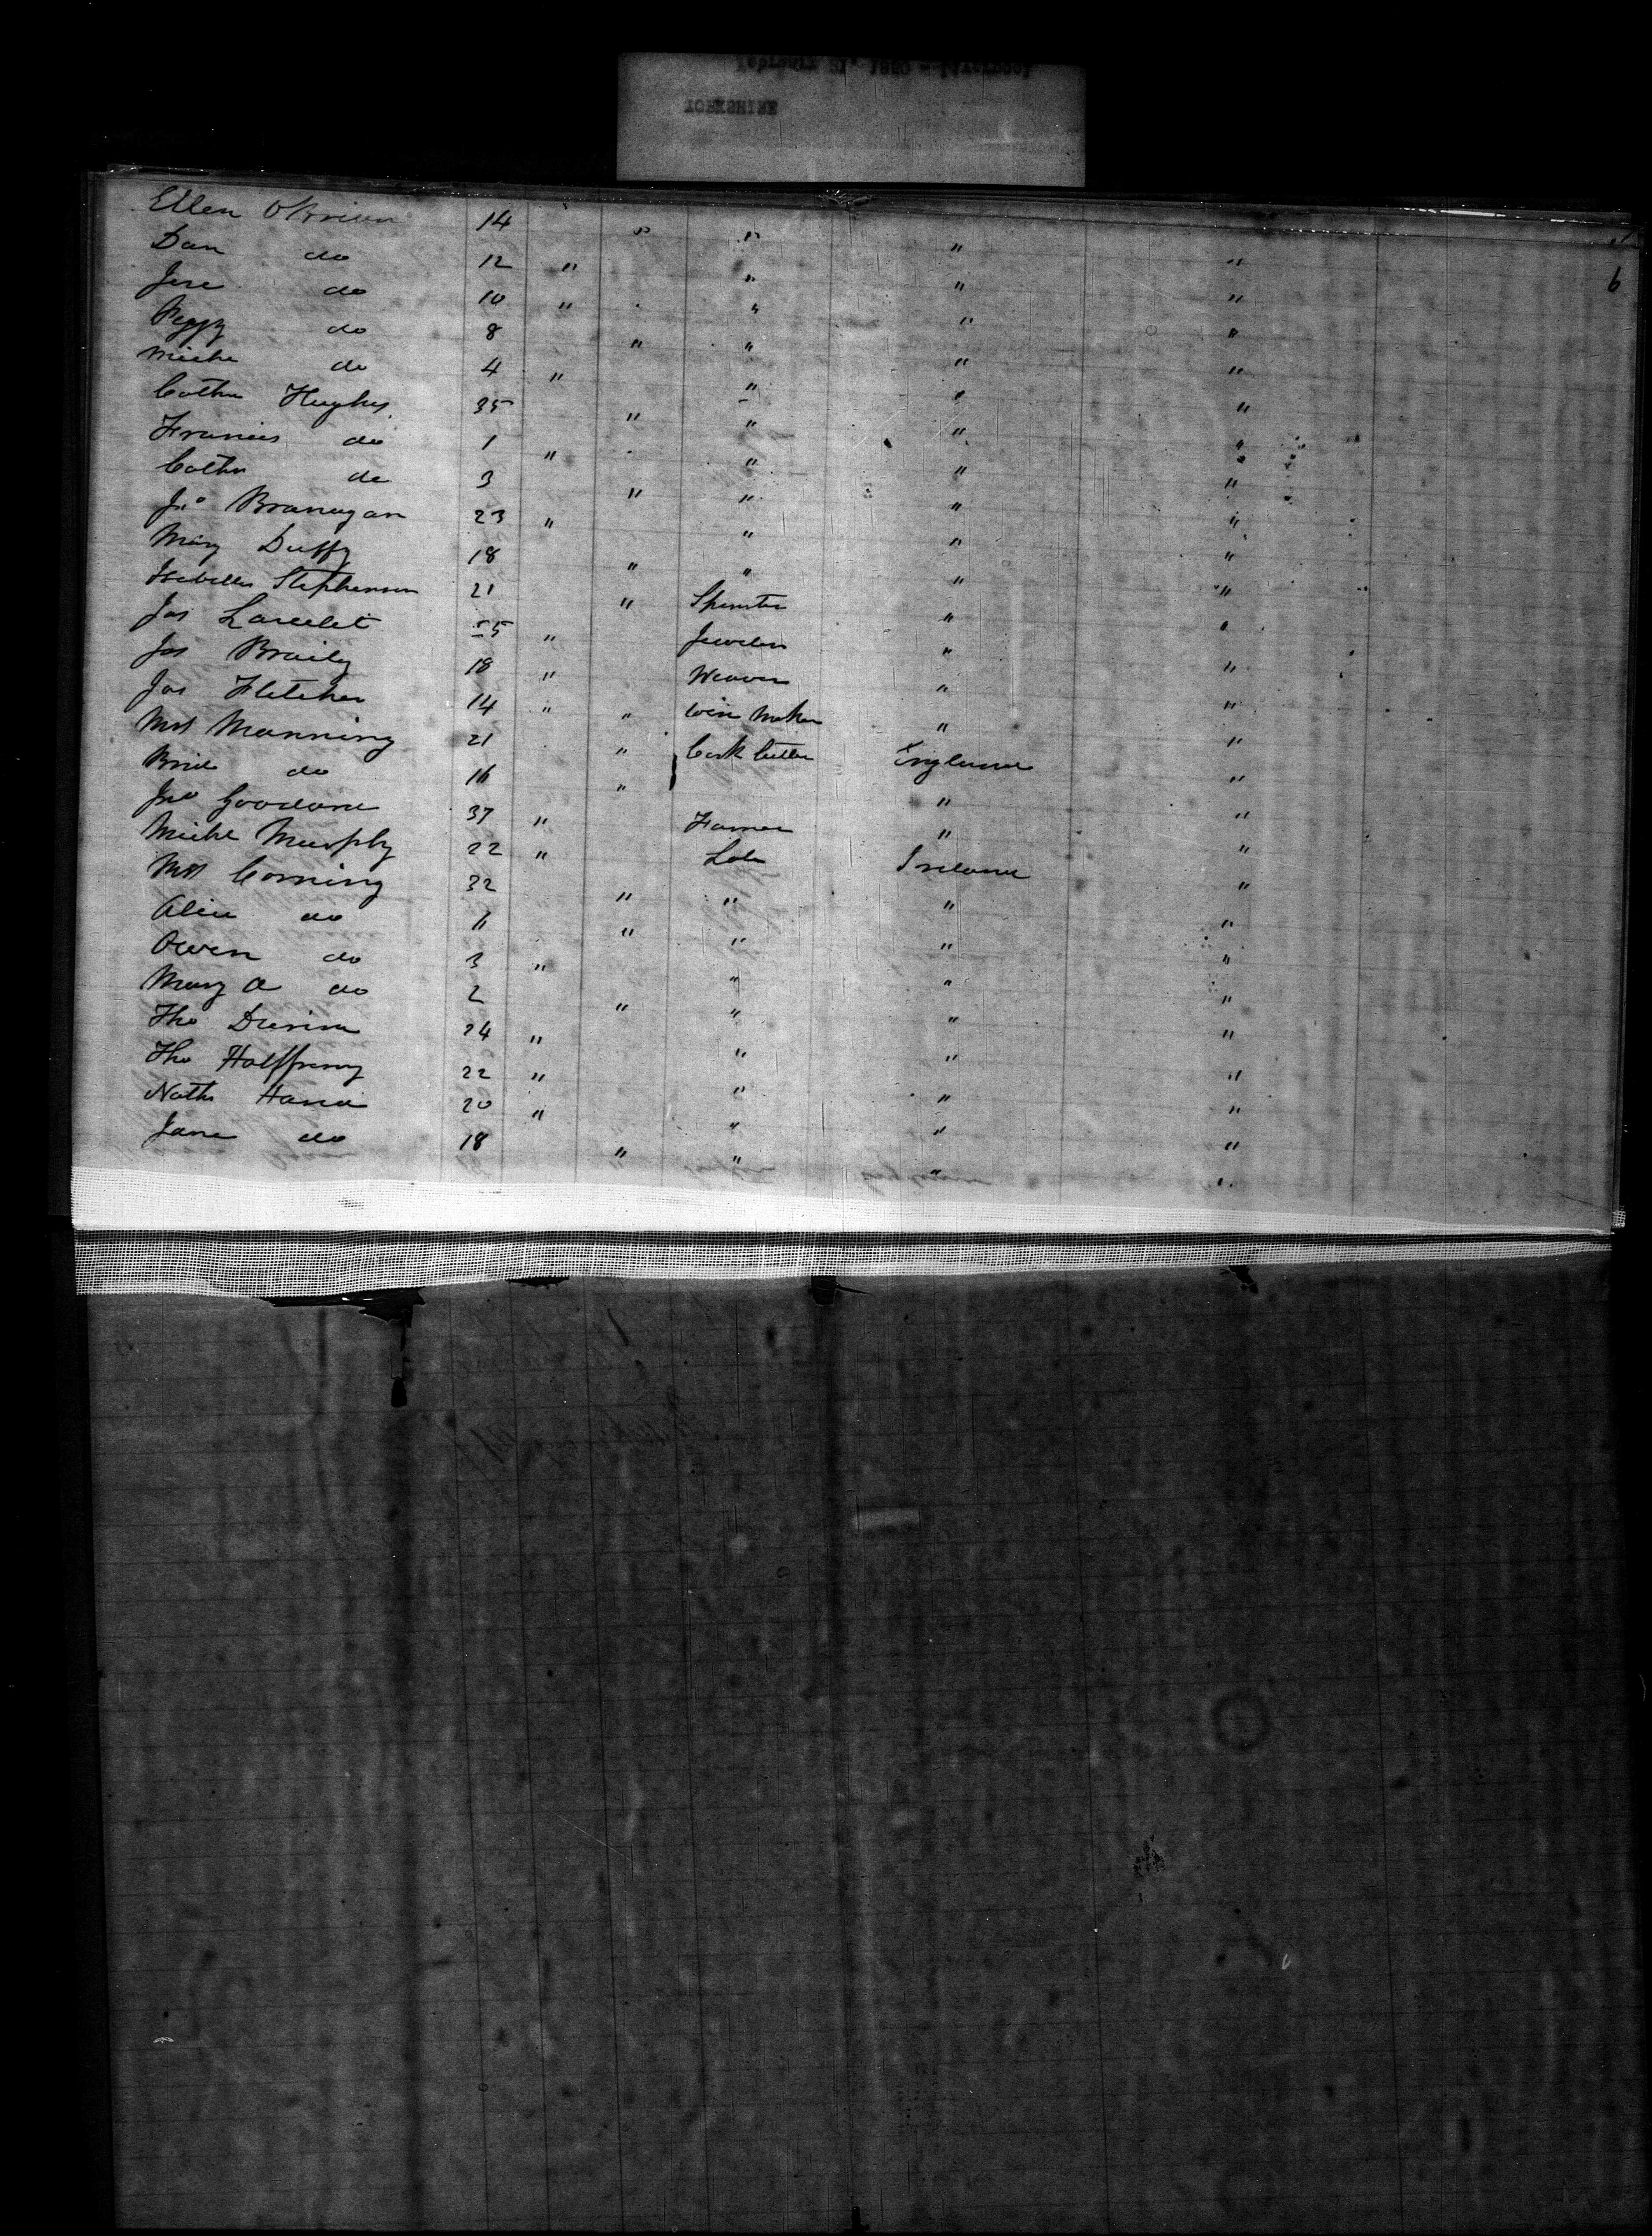 YORKSHIRE
6
Ellen O'Brien 14 " " " "
Dan do 12 " " " "
Jere do 10 " " " "
Peggy do 8 " " " "
Miche do 4 " " " "
Cathn Hughes 35 " " " "
Francis do 1 " " " "
Cathn do 3 " " " "
Jno Branagan 23 " " " "
Mary Duffy 18 " " " "
Isabella Stephenson 21 " Spinster " "
Jas 55 " Jeweler " "
Jas Braily 18 " Weaver " "
Jas Fletcher 14 " " Maker " "
Mrs Manning 21 " Cork Cutter England "
Brid do 16 " " "
Jno 37 " Farmer " "
Miche Murphy 22 " Lab Ireland "
Mrs Corning 32 " " " "
Alice do 11 " " " "
Owen do 3 " " " "
Mary A do 2 " " " "
Tho 24 " " " "
Tho Halfpenny 22 " " " "
Nath Hand 20 " " " "
Jane do 18 " " " "